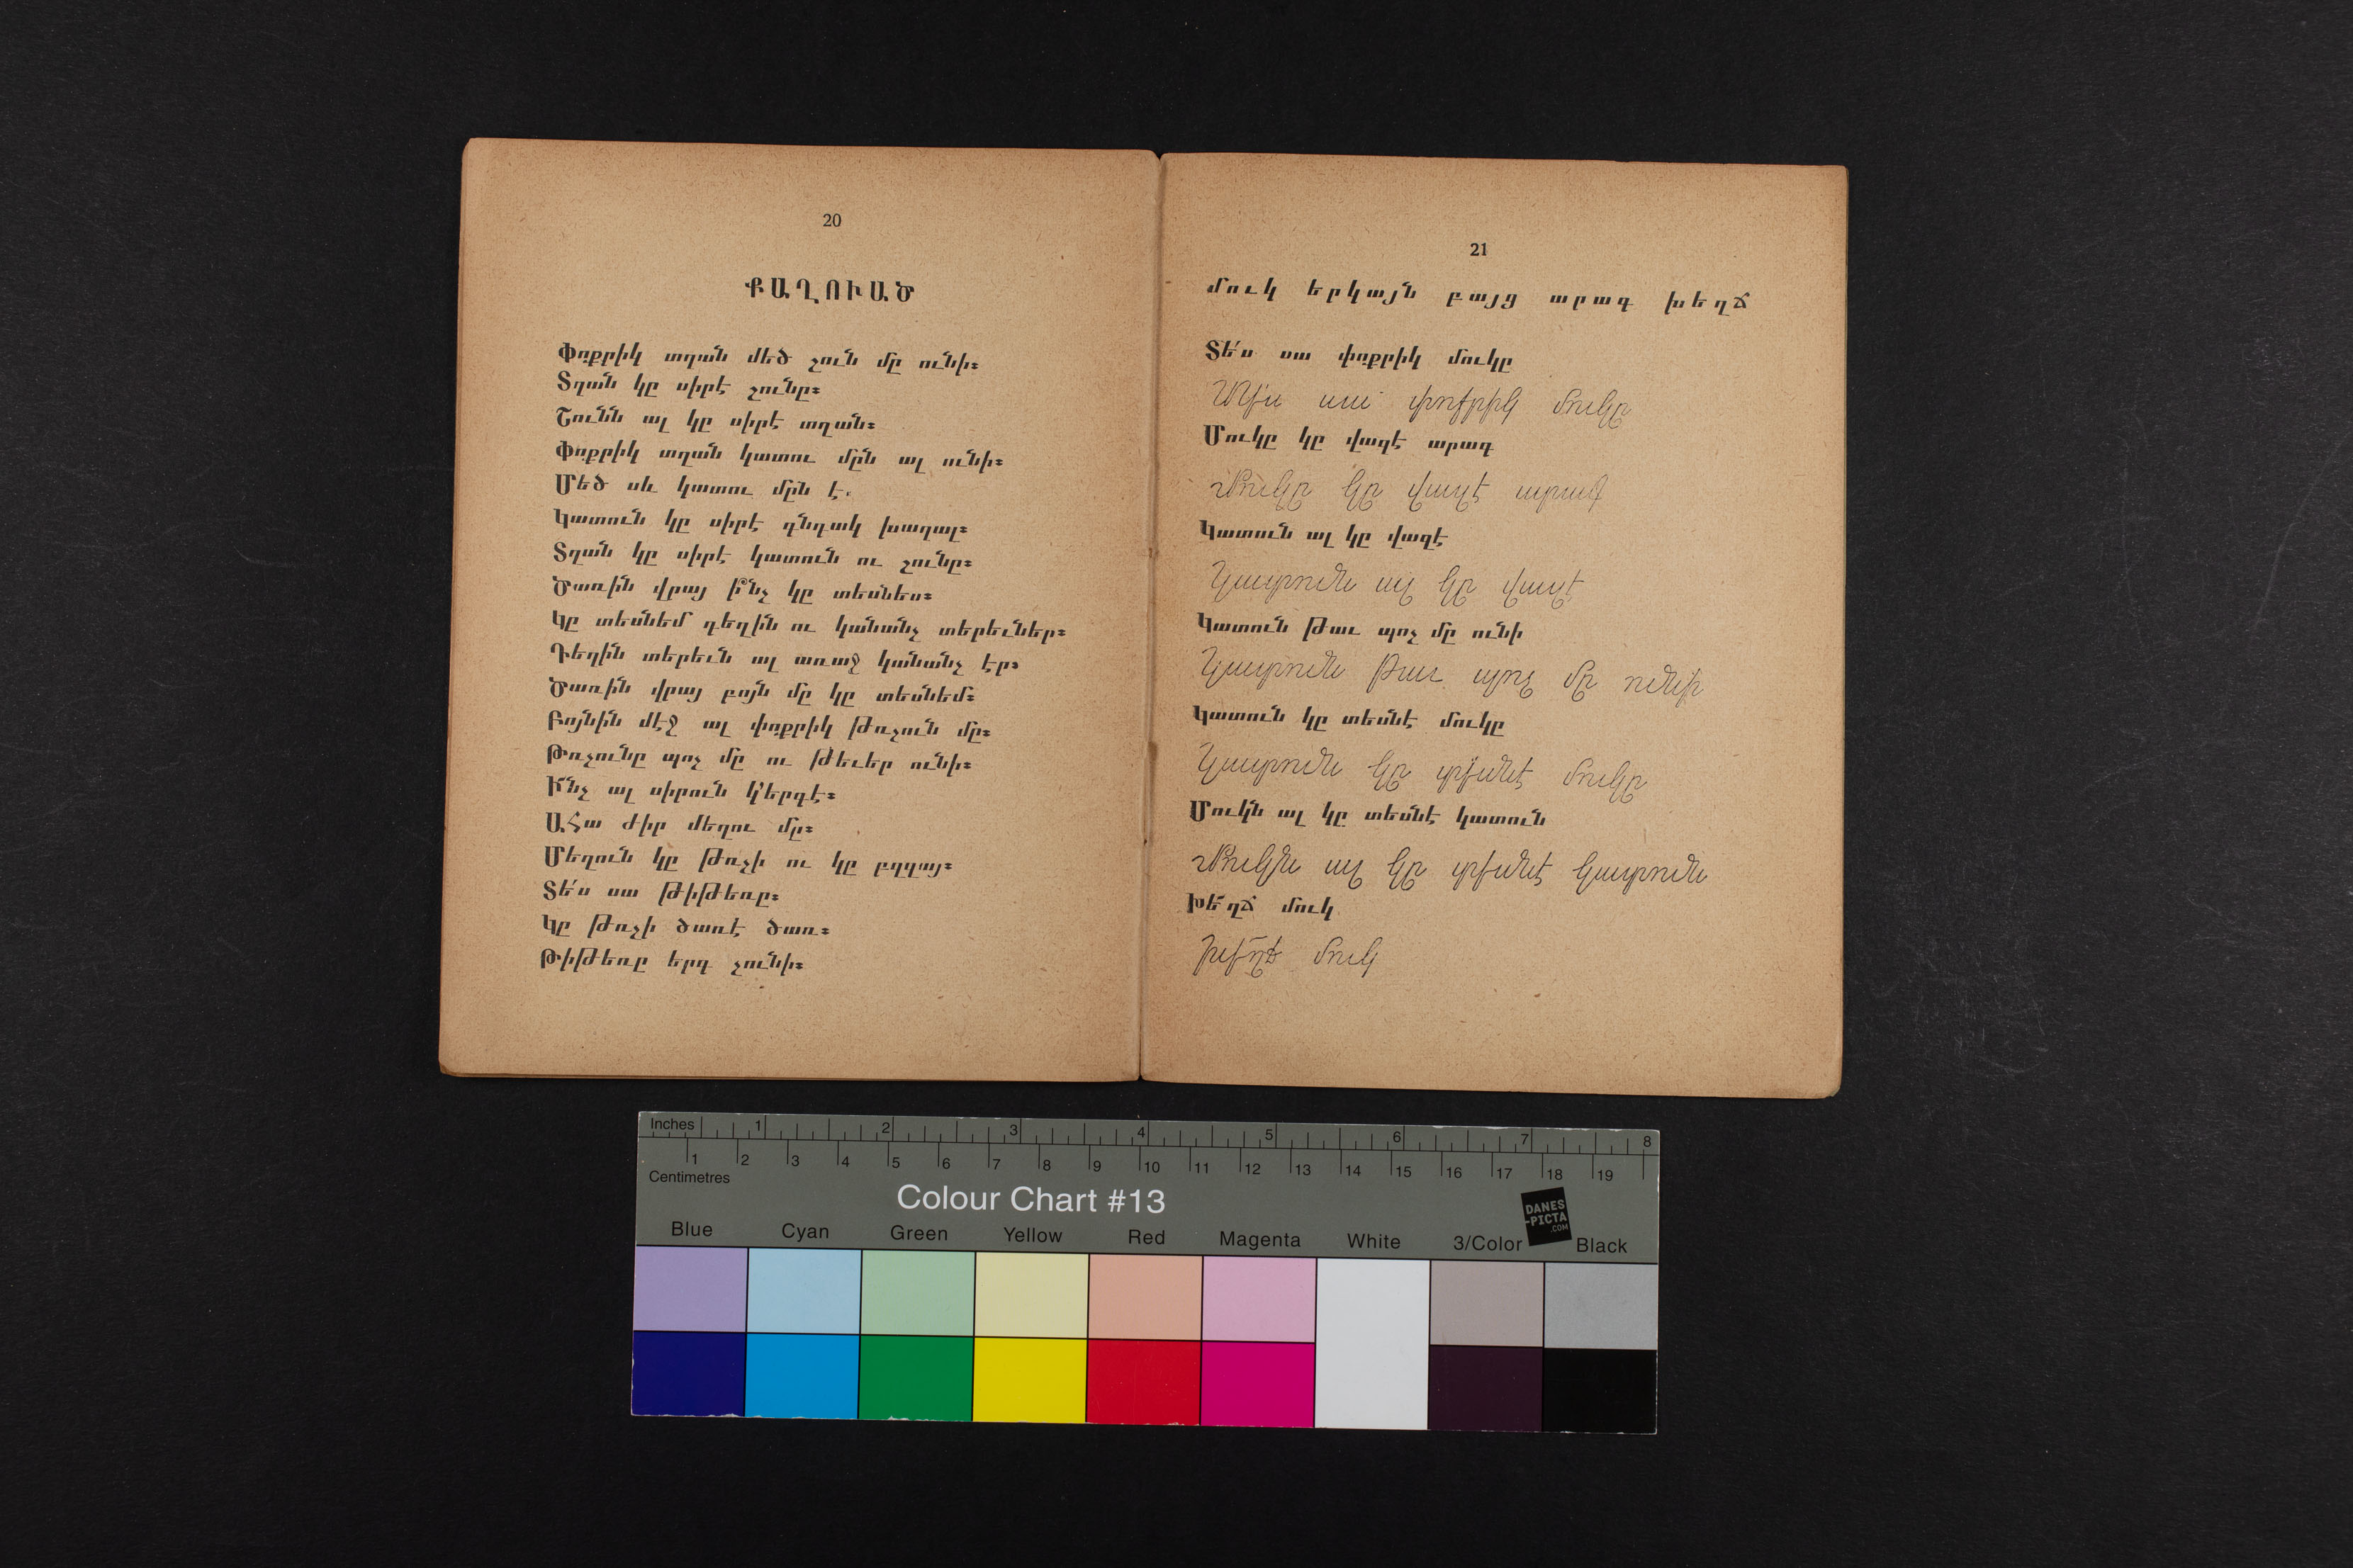 20
ՔԱՂՈՒԱԾ
Փոքրիկ տղան մեծ շուն մը ունի։
Տղան կը սիրէ շունը։
Շունն ալ կը սիրէ տղան։
Փոքրիկ տղան կատու մըն ալ ունի։
Մեծ սև կատու մըն է.
Կատուն կը սիրէ գնդակ խաղալ։
Տղան կը սիրէ կատուն ու շունը։
Ծառին վրայ ի՞նչ կը տեսնես։
Կը տեսնեմ դեղին ու կանանչ տերեւներ։
Դեղին տերեւն ալ առաջ կանանչ էր։
Ծառին վրայ բոյն մը կը տեսնեմ։
Բոյնին մէջ ալ փոքրիկ թռչուն մը։
Թռչունը պոչ մը ու թեւեր ունի։
Ի՜նչ ալ սիրուն կ՚երգէ։
Ահա ժիր մեղու մը։
Մեղուն կը թռչի ու կը բզզայ։
Տե՛ս սա թիթեռը։
Կը թռչի ծառէ ծառ։
Թիթեռը երգ չունի։
21
մուկ երկայն բայց արագ խեղճ
Տե՛ս սա փոքրիկ մուկը
Տե՛ս սա փոքրիկ մուկը
Մուկը կը վազէ արագ
Մուկը կը վազէ արագ
Կատուն ալ կը վազէ
Կատուն ալ կը վազէ
Կատուն թաւ պոչ մը ունի
Կատուն թաւ պոչ մը ունի
Կատուն կը տեսնէ մուկը
Կատուն կը տեսնէ մուկը
Մուկն ալ կը տեսնէ կատուն
Մուկն ալ կը տեսնէ կատուն
Խե՜ղճ մուկ
Խե՜ղճ մուկ
Inches 1 2 3 4 5 6 7 8
1 2 3 4 5 6 7 8 9 10 11 12 13 14 15 16 17 18 19
Centimetres
Colour Chart #13
DANES
-PICTA
.COM
Blue Cyan Green Yellow Red Magenta White 3/Color Black